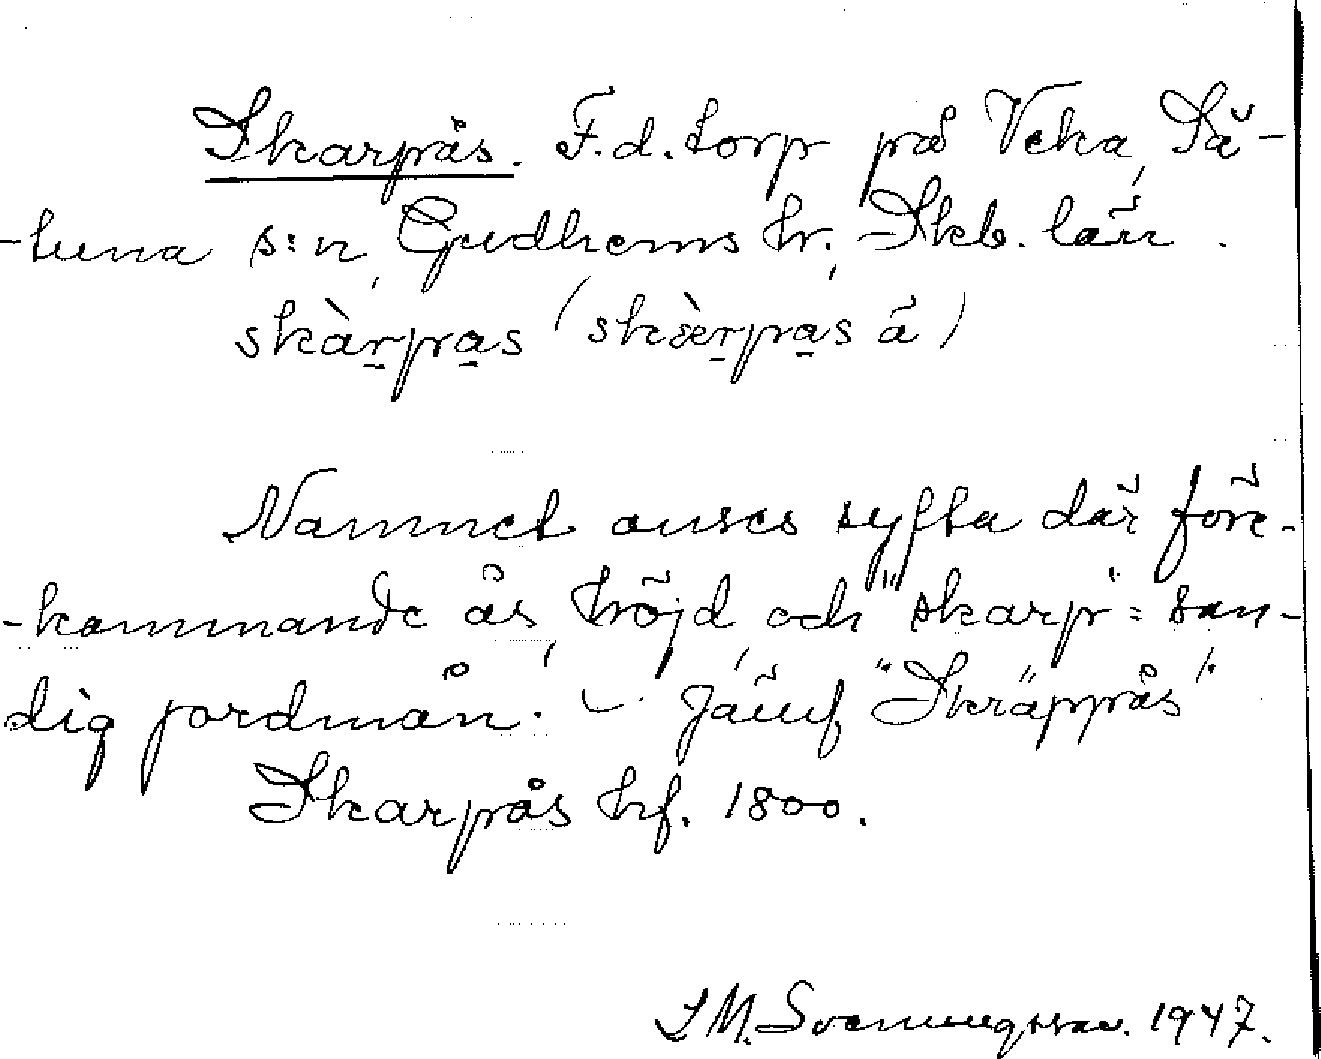 Skarpås. F.d. torp på Veka, Sä-
-tuna s:n, Gudhems hr., Skb. län.
skàr̠pa̠s (skæ̀r̠pa̠s å)
Namnet anses syfta där före-
-kommande ås, höjd, och "skarp" = san-
dig jordmån. - Jämf. "Skräppås".
Skarpås hf. 1800.
S M. Svenungsson. 1947.